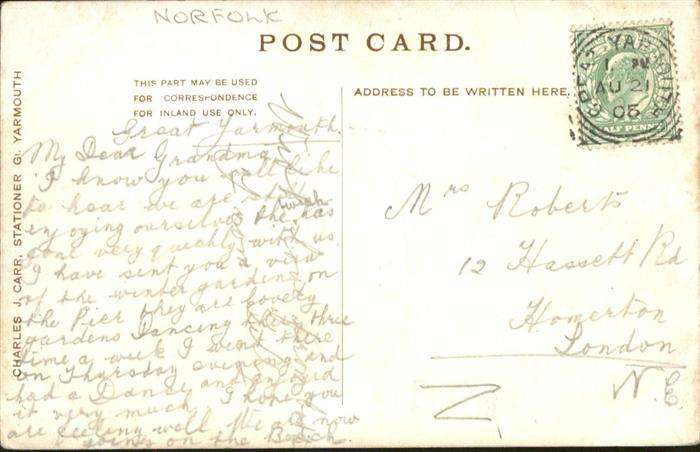 NORFOLK
POST CARD.
THIS PART MAY BE USED
FOR CORRESPONDENCE
FOR INLAND USE ONLY.
ADDRESS TO BE WRITTEN HERE.
GREAT YARMOUTH
1 PM
AU 21
05
HALF PENNY
CHARLES J. CARR, STATIONER G. YARMOUTH
Great Yarmouth.
My Dear Grandma
I know you will like
to hear we are still
enjoying ourselves the
gone very quickly with us
I have sent you a view
of the winter gardens on
the Pier they are lovery
gardens Dancing there three
time a week I went there
on Thursday evening and
had a Dance and enjoyed
it very much I hope you
are feeling well We are now
going on the Beach.
Mrs Roberts
12 Hassett Rd
Homerton
London
N.E.
N